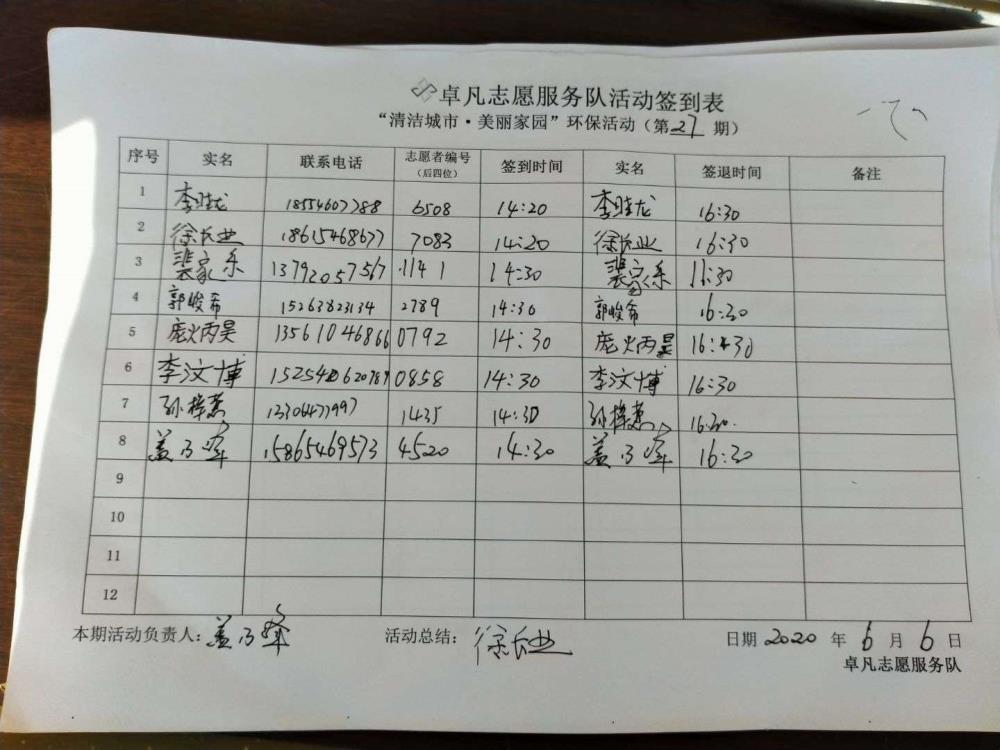 卓凡志愿服务队活动签到表
“清洁城市·美丽家园”环保活动（第27期）
序号 实名 联系电话 志愿者编号（后四位） 签到时间 实名 签退时间 备注
1 李胜龙 18554607788 6508 14:20 李胜龙 16:30
2 徐长业 18615468677 7083 14:20 徐长业 16:30
3 裴家乐 13792057567 1141 14:30 裴家乐 16:30
4 郭峻希 15263823134 2789 14:30 郭峻希 16:30
5 庞炳昊 13561046866 0792 14:30 庞炳昊 16:30
6 李汶博 0858 14:30 李汶博 16:30
7 孙梓 1435 14:30 孙梓 16:30.
8 盖乃峰 15865469573 4520 14:30 盖乃峰 16:30
9
10
11
12
本期活动负责人：盖乃峰 活动总结：徐长业 日期 2020 年 6 月 6 日
卓凡志愿服务队